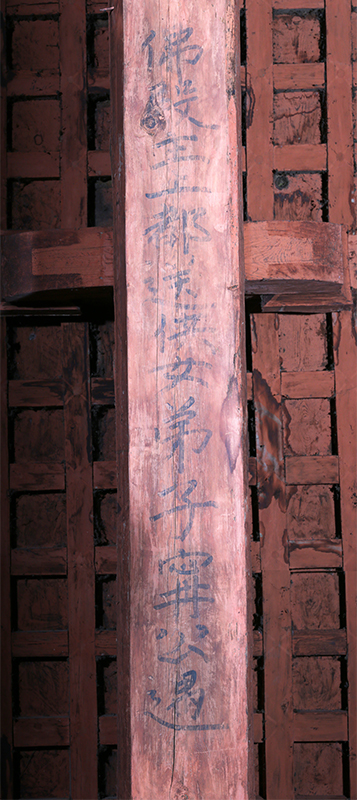 佛殿主上都送供女弟子寗公遇